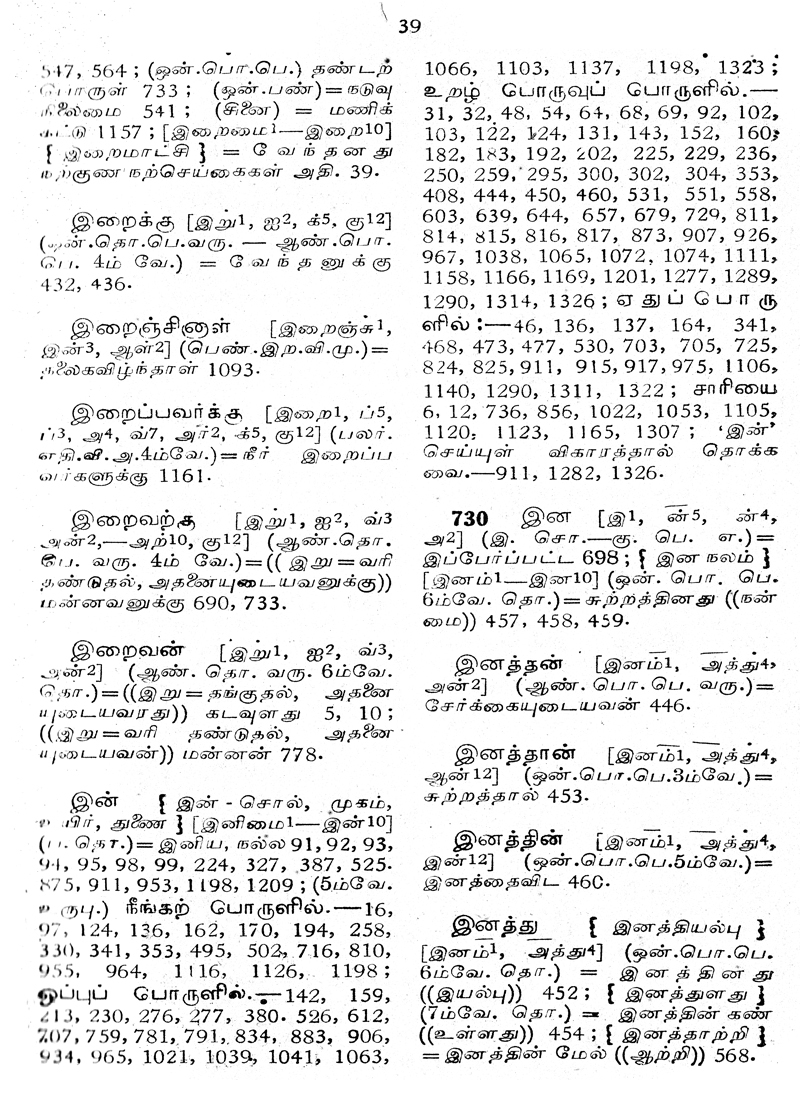 39
547, 564 ; (ஒன்.பொ.பெ.) தண்டற்
பொருள் 733 ; (ஒன்.பண்)=நடுவு
நிலைமை 541 ; (சினை) = மணிக்
கட்டு 1157 ; [இறைமை1—இறை10]
{ இறைமாட்சி } = வேந்தனது
நற்குண நற்செய்கைகள் அதி. 39.
இறைக்கு [இறு1, ஐ2, க்5, கு12]
(ஆண்.தொ.பெ.வரு. — ஆண்.பொ.
பெ. 4ம் வே.) = வேந்தனுக்கு
432, 436.
இறைஞ்சினாள் [இறைஞ்சு1,
இன்3, ஆள்2] (பெண்.இற.வி.மு.)=
தலைகவிழ்ந்தாள் 1093.
இறைப்பவர்க்கு [இறை1, ப்5,
ப்3, அ4, வ்7, அர்2, க்5, கு12] (பலர்.
எதி.வி.அ.4ம்வே.)=நீர் இறைப்ப
வர்களுக்கு 1161.
இறைவற்கு [இறு1, ஐ2, வ்3
அன்2,—அற்10, கு12] (ஆண்.தொ.
பெ. வரு. 4ம் வே.)=((இறு=வரி
தண்டுதல், அதனையுடையவனுக்கு))
மன்னவனுக்கு 690, 733.
இறைவன் [இறு1, ஐ2, வ்3,
அன்2] (ஆண். தொ. வரு. 6ம்வே.
தொ.)=((இறு=தங்குதல், அதனை
யுடையவரது)) கடவுளது 5, 10 ;
((இறு=வரி தண்டுதல், அதனை
யுடையவன்)) மன்னன் 778.
இன் { இன் - சொல், முகம்,
உயிர், துணை } [இனிமை1—இன்10]
(ப. தொ.)=இனிய, நல்ல 91, 92, 93,
94, 95, 98, 99, 224, 327, 387, 525.
875, 911, 953, 1198, 1209 ; (5ம்வே.
உருபு.) நீங்கற் பொருளில்.—16,
97, 124, 136, 162, 170, 194, 258,
330, 341, 353, 495, 502, 716, 810,
955, 964, 1116, 1126, 1198 ;
ஒப்புப் பொருளில்.—142, 159,
213, 230, 276, 277, 380. 526, 612,
707, 759, 781, 791, 834, 883, 906,
934, 965, 1021, 1039, 1041, 1063,
1066, 1103, 1137, 1198, 1323 ;
உறழ் பொருவுப் பொருளில்.—
31, 32, 48, 54, 64, 68, 69, 92, 102,
103, 122, 124, 131, 143, 152, 160,
182, 183, 192, 202, 225, 229, 236,
250, 259, 295, 300, 302, 304, 353,
408, 444, 450, 460, 531, 551, 558,
603, 639, 644, 657, 679, 729, 811,
814, 815, 816, 817, 873, 907, 926,
967, 1038, 1065, 1072, 1074, 1111,
1158, 1166, 1169, 1201, 1277, 1289,
1290, 1314, 1326 ; ஏதுப் பொரு
ளில்:—46, 136, 137, 164, 341,
468, 473, 477, 530, 703, 705, 725,
824, 825, 911, 915, 917, 975, 1106,
1140, 1290, 1311, 1322 ; சாரியை
6, 12, 736, 856, 1022, 1053, 1105,
1120. 1123, 1165, 1307 ; ‘இன்’
செய்யுள் விகாரத்தால் தொக்க
வை.—911, 1282, 1326.
730 இன [இ1, ன்5, ன்4,
அ2] (இ. சொ.—கு. பெ. எ.)=
இப்பேர்ப்பட்ட 698 ; { இன நலம் }
[இனம்1—இன10] (ஒன். பொ. பெ.
6ம்வே. தொ.)=சுற்றத்தினது ((நன்
மை)) 457, 458, 459.
இனத்தன் [இனம்1, அத்து4,
அன்2] (ஆண். பொ. பெ. வரு.)=
சேர்க்கையுடையவன் 446.
இனத்தான் [இனம்1, அத்து4,
ஆன்12] (ஒன்.பொ.பெ.3ம்வே.)=
சுற்றத்தால் 453.
இனத்தின் [இனம்1, அத்து4,
இன்12] (ஒன்.பொ.பெ.5ம்வே.)=
இனத்தைவிட 460.
இனத்து { இனத்தியல்பு }
[இனம்1, அத்து4] (ஒன்.பொ.பெ.
6ம்வே. தொ.) = இனத்தினது
((இயல்பு)) 452 ; { இனத்துளது }
(7ம்வே. தொ.) = இனத்தின் கண்
((உள்ளது)) 454 ; { இனத்தாற்றி }
= இனத்தின் மேல் ((ஆற்றி)) 568.